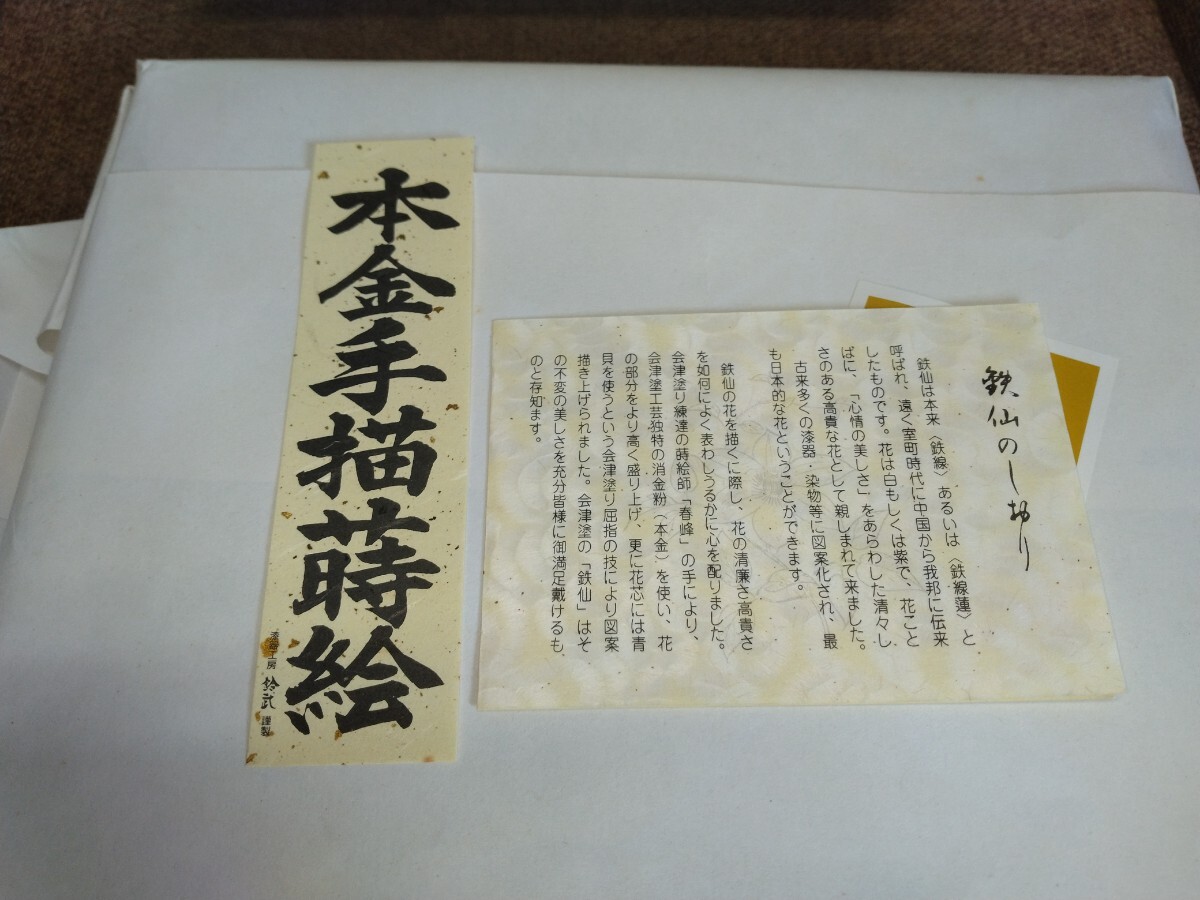 本金手描蒔絵
漆器工房 鈴武 謹製
鉄仙のしおり
鉄仙は本来〈鉄線〉あるいは〈鉄線蓮〉と
呼ばれ、遠く室町時代に中国から我邦に伝来
したものです。花は白もしくは紫で、花こと
ばに、「心情の美しさ」をあらわした清々し
さのある高貴な花として親しまれて来ました。
古来多くの漆器・染物等に図案化され、最
も日本的な花ということができます。
鉄仙の花を描くに際し、花の清廉さ高貴さ
を如何によく表わしうるかに心を配りました。
会津塗り練達の蒔絵師「春峰」の手により、
会津塗工芸独特の消金粉（本金）を使い、花
の部分をより高く盛り上げ、更に花芯には青
貝を使うという会津塗り屈指の技により図案
描き上げられました。会津塗の「鉄仙」はそ
の不変の美しさを充分皆様に御満足戴けるも
のと存知ます。